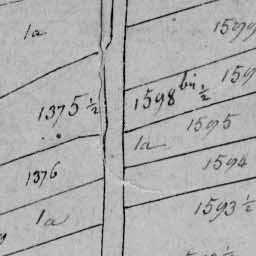 1a
1375 1/2
1376
1a
1598 bis 1/2
1595
1a
1594
1593 1/2